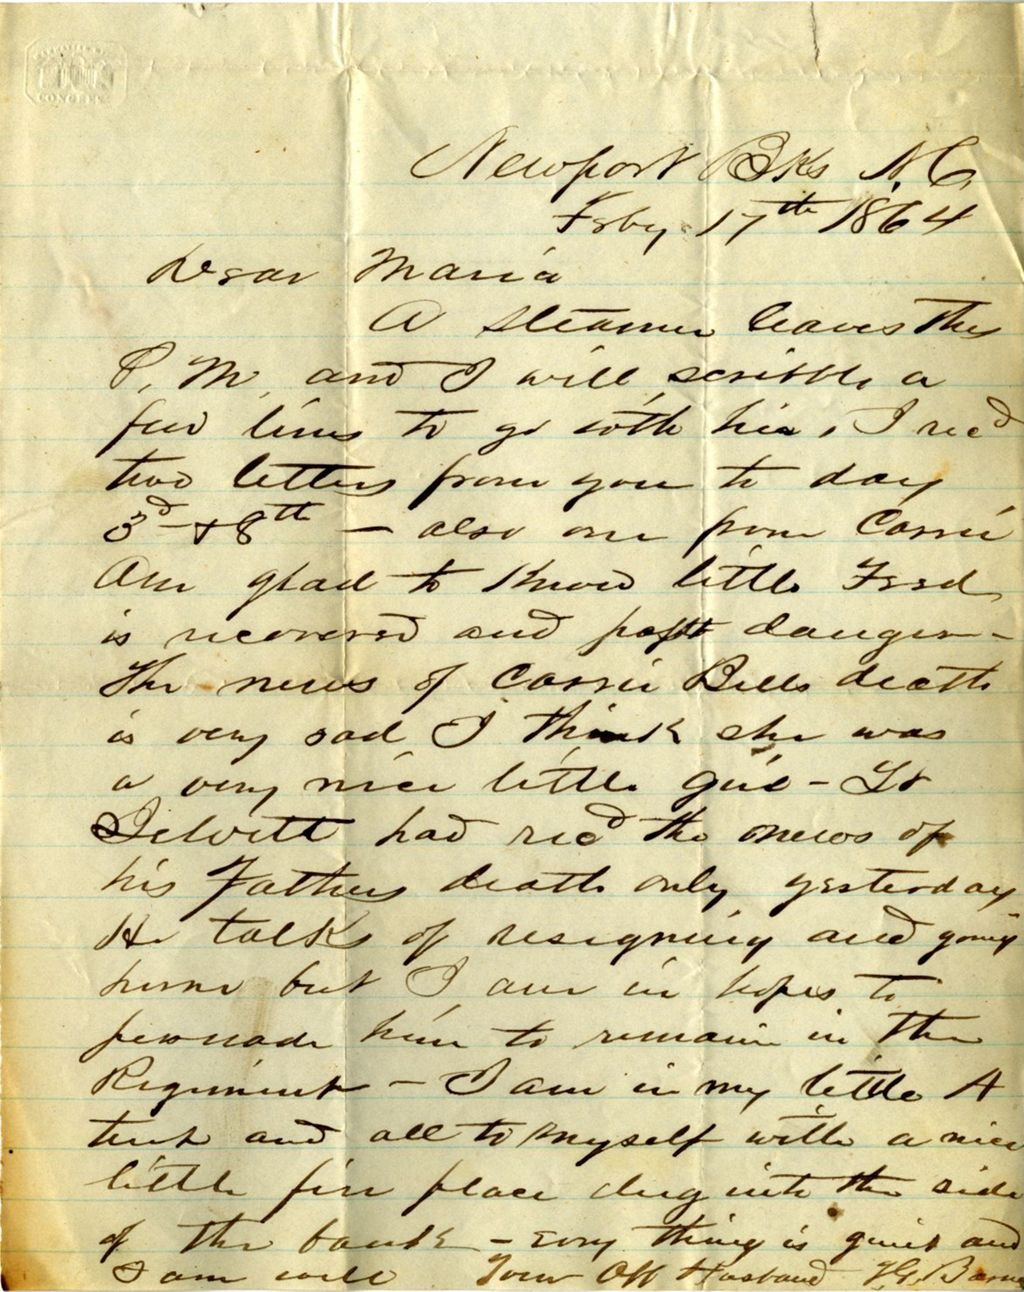 CONGRESS
Newport Bks N.C.
Feby 17th 1864
Dear Maria
A steamer leaves this
P.M. and I will scribble a
few lines to go with her, I recd
two letters from you to day
3d & 8th — also one from Carrie
Am glad to know little Fred
is recovered and past danger—
The news of Carrie Bells death
is very sad I think she was
a very nice little girl — Lt
had recd the news of
his Fathers death only yesterday
He talks of resigning and going
home but I am in hopes to
persuade him to remain in the
Regiment — I am in my little A
tent and all to myself with a nice
little fire place dug into the side
of the bank — Every thing is quiet and
I am well Your Aff Husband